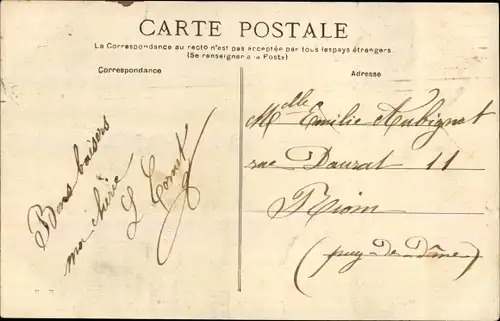 CARTE POSTALE
La Correspondance au recto n'est pas acceptée par tous les pays étrangers
(Se renseigner à la Poste)
Correspondance
Adresse
Bons baisers
ma chérie
L Cornet
Melle Emilie Aubignat
rue Daurat 11
Riom
(puy-De-Dôme)